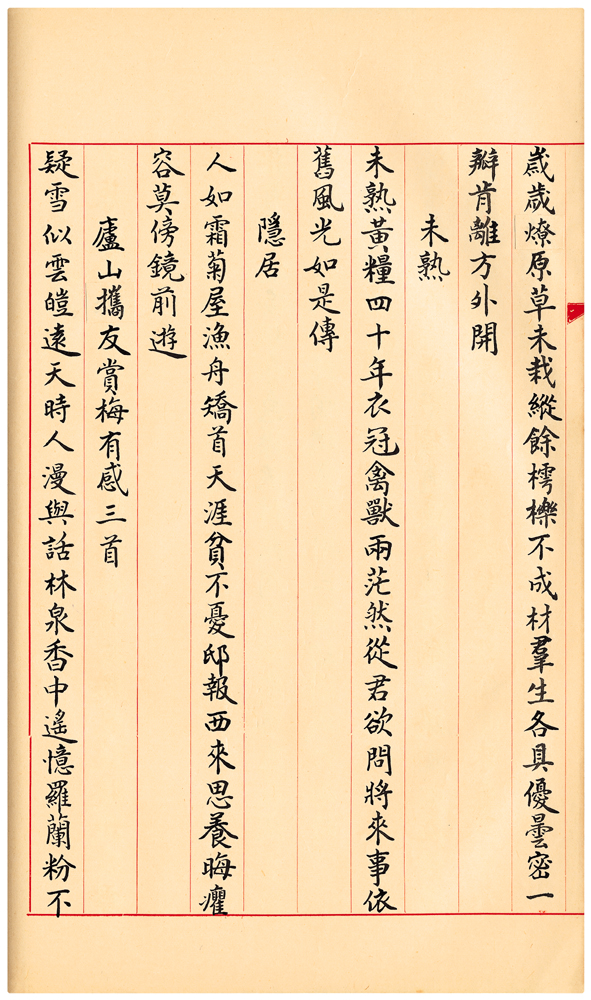 歲歲燎原草未栽縱餘樗櫟不成材羣生各具優曇密一
瓣肯離方外開
未熟
未熟黃糧四十年衣冠禽獸兩茫然從君欲問將來事依
舊風光如是傳
隱居
人如霜菊屋漁舟矯首天涯貧不憂邸報西來思養晦癯
容莫傍鏡前遊
廬山攜友賞梅有感三首
疑雪似雲皚遠天時人漫與話林泉香中遙憶羅蘭粉不